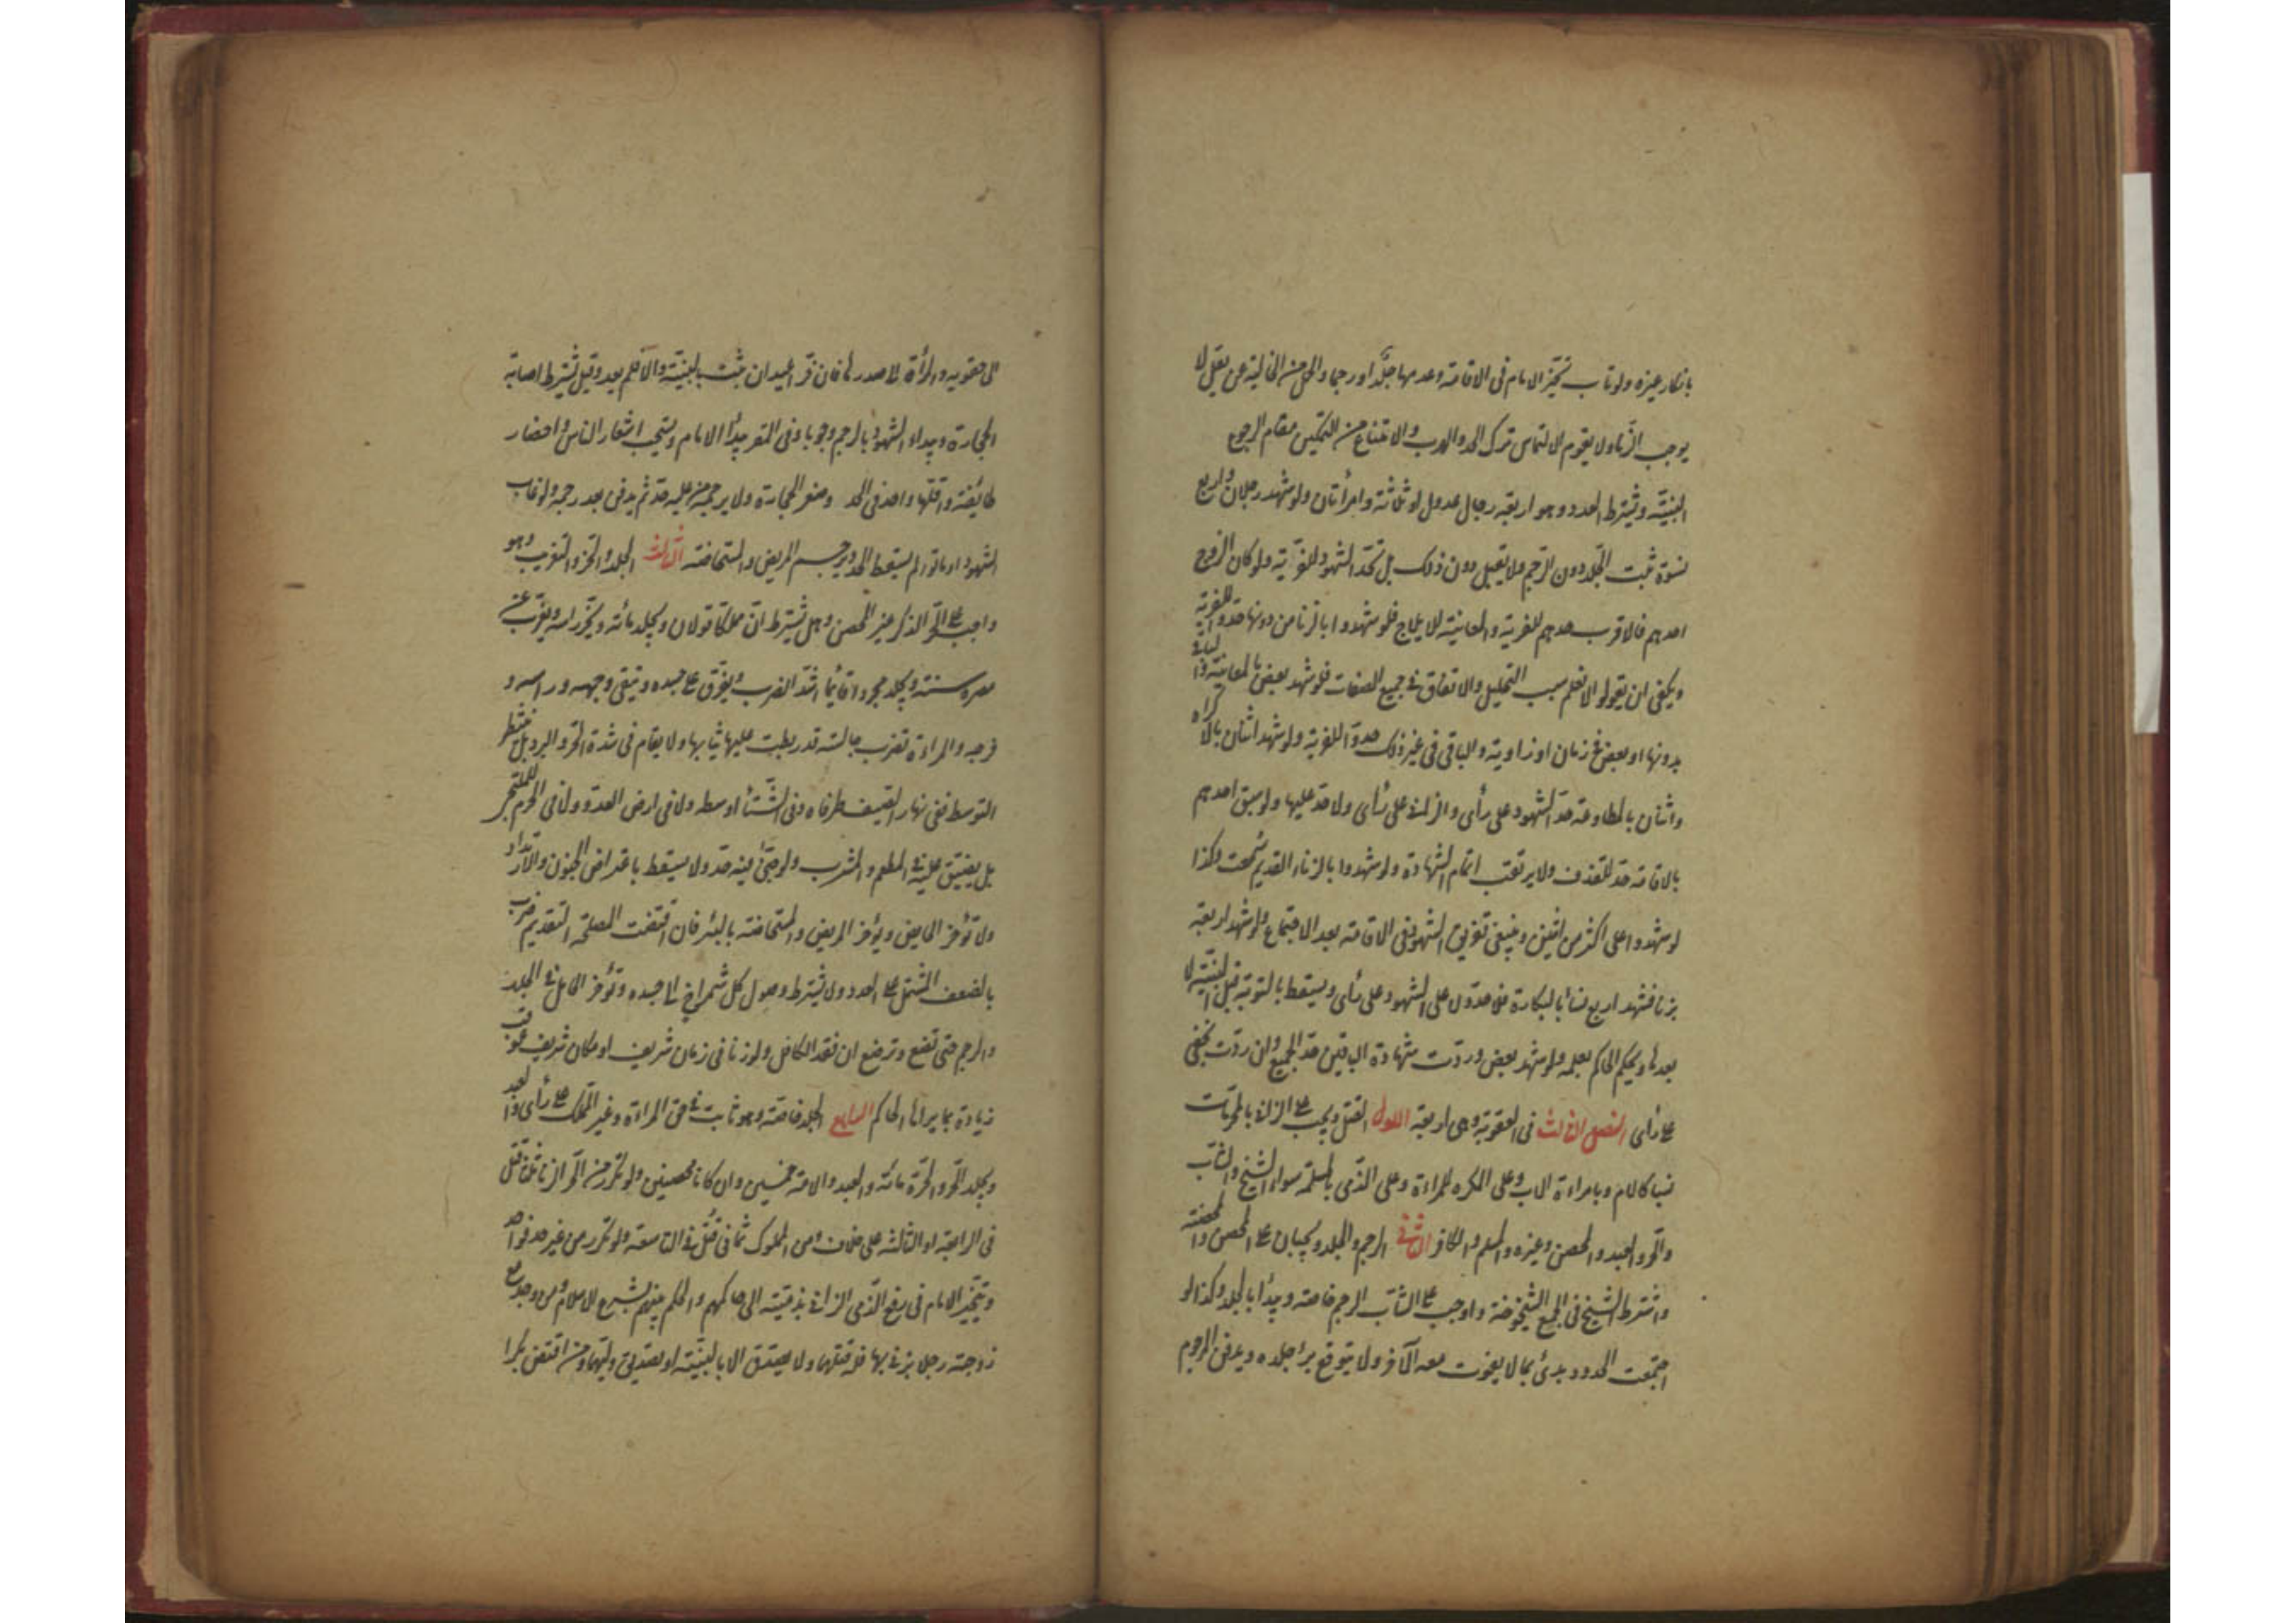 بانكار غيره ولو تاب تخيّر الامام فى الاقامة وعدمها جلدا او رجما والحمل من الخالية عن بعل لا
يوجب الزّنا ولا يقوم الالتماس ترك الحد والهرب والامتناع من التمكين مقام الرجوع
البيّنة ويشترط العدد وهو اربعة رجال عدول او ثلثة وامرأتان ولو شهد رجلان واربع
نسوة ثبت الجلد دون الرّجم ولا يقبل دون ذلك بل تحدّ الشهود للفرية ولو كان الزوج
احدهم فالاقرب حدهم للفرية والمعاينة للايلاج فلو شهدوا بالزنا من دونها حدوا للفرية
ويكفى ان يقولوا لا نعلم سبب التحليل والاتفاق فى جميع الصفات فلو شهد بعض بالمعاينة والباقى
بدونها او بعض فى زمان او زاوية والباقى فى غير ذلك حدوا للفرية ولو شهد اثنان بالاكراه
واثنان بالمطاوعة حدّ الشهود على رأى والزانى على رأى ولا حد عليها ولو سبق احدهم
بالاقامة حد للقذف ولا يرتقب اتمام الشهادة ولو شهدوا بالزناء القديم سمعت وكذا
لو شهدوا على اكثر من اثنين وينبغى تفريق الشهود فى الاقامة بعد الاجتماع ولو شهد اربعة
بزنا فشهد اربع نسأ بالبكارة فلا حد ولا على الشهود على رأى ويسقط بالتوبة قبل البيّنة لا
بعدها ويحكم الحاكم بعلمه ولو شهد بعض وردّت شهادة الباقين حدّ الجميع وان ردّت بخفى
على رأى الفصل الثالث فى العقوبة وهى اربعة الاول القتل ويجب على الزانى بالمحرمات
نسبا كالام وبامراءة الاب وعلى المكره للمراءة وعلى الذمى بالمسلمة سواء الشيخ والشاب
والحر والعبد والمحصن وغيره والمسلم والكافر الثانى الرجم والجلد ويجبان على المحصن والمحصنة
واشترط الشيخ فى الجمع الشيخوخة واوجب على الشاب الرجم خاصة ويبدأ بالجلد وكذا لو
اجتمعت الحدود بدئ بما لا يفوت معه الآخر ولا يتوقع برء جلده ويدفن المرجوم
الى حقويه والمرأة الى صدرها فان فرّ اعيد ان ثبت بالبيّنة والّا فلم يعد وقيل يشترط اصابة
الحجارة ويبداء الشهود بالرجم وجوبا وفى المقر يبدأ الامام ويستحب اشعار الناس واحضار
طايفة واقلها واحد فى الحد وصغر الحجارة ولا يرجمه من عليه حدّ ثم يدفن بعد رجمه ولو غاب
الشهود او ماتوا لم يسقط الحد ويرجم المريض والمستحاضة الثالث الجلد والجز والتغريب وهو
واجب على الحرّ الذكر غير المحصن وهل يشترط ان مملكا قولان ويجلد مائة ويجز راسه ويغرّب عن
مصره سنة ويجلد مجردا قائما اشد الضرب ويفرّق على جسده ويتقى وجهه وراسه و
فرجه والمراءة تضرب جالسة قد ربطت عليها ثيابها ولا يقام فى شدة الحرّ والبرد بل ينتظر
التوسط ففى نهار الصيف طرفاه وفى الشتأ اوسطه ولا فى ارض العدو ولا فى الحرم للملتجى
بل يضيّق عليه فى المطعم والمشرب ولو جنى فيه حد ولا يسقط باعتراض الجنون والارتداد
ولا تؤخر الحايض ويؤخر المريض والمستحاضة بالبئر فان اقتضت المصلحة التقديم ضرب
بالضغث المشتمل على العدد ولا يشترط وصول كل شمراخ الى جسده وتؤخر الحامل فى الجلد
والرجم حتى تضع وترضع ان فقد الكافل ولو زنا فى زمان شريف او مكان شريف عوقب
زيادة بما يراه الحاكم الرابع الجلد خاصة وهو ثابت فى حق المراءة وغير المملك على رأى والعبد
ويجلد الحرّ والحرّة مائة والعبد والامة خمسين وان كانا محصنين ولو تكرر من الحر الزنا ثلثا قتل
فى الرابعة او الثالثة على خلاف ومن المملوك ثمانى قتل فى التاسعة ولو تكرر من غير حد فواحد
ويتخيّر الامام فى رفع الذمى الزانى بذميّة الى حاكمهم والحكم بينهم بشرع الاسلام ومن وجد مع
زوجته رجلا يزنى بها فله قتلهما ولا يصدق الا بالبيّنة او تصديق وليهما ومن افتض بكرا